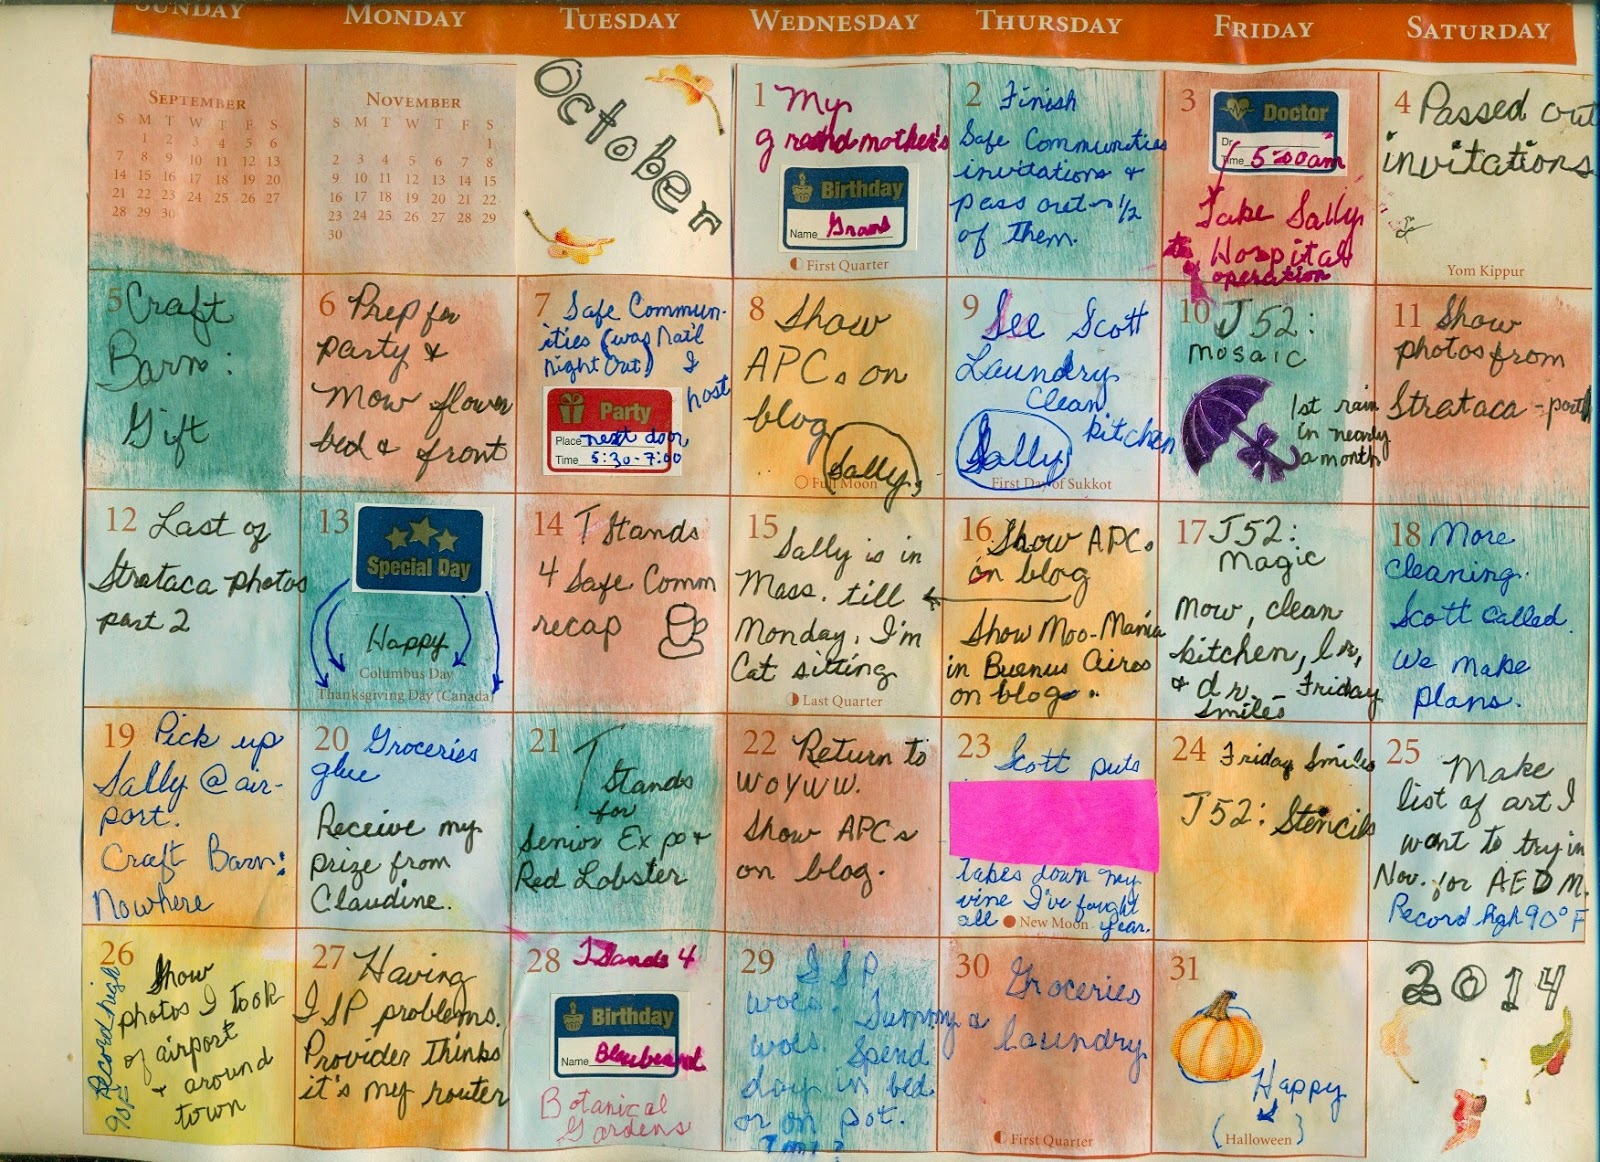 SUNDAY MONDAY TUESDAY WEDNESDAY THURSDAY FRIDAY SATURDAY
SEPTEMBER
S M T W T F S
1 2 3 4 5 6
7 8 9 10 11 12 13
14 15 16 17 18 19 20
21 22 23 24 25 26 27
28 29 30
NOVEMBER
S M T W T F S
1
2 3 4 5 6 7 8
9 10 11 12 13 14 15
16 17 18 19 20 21 22
23 24 25 26 27 28 29
30
October
1 My
grandmother's
Birthday
Name Grams
First Quarter
2 Finish
Safe Communities
invitations &
pass out ~ 1/2
of them.
3
Doctor
Dr.
Time 5:00am
Take Sally
to Hospital
operation
4 Passed out
invitations
Yom Kippur
5 Craft
Barn:
Gift
6 Prep for
party &
Mow flower
bed & front
7 Safe Commun-
ities (was Nat'l
Night Out) I
host
Party
Place next door
Time 5:30-7:00
8 Show
APCs on
blog
Sally
Full Moon
9 See Scott
Laundry
Clean
kitchen
Sally
First Day of Sukkot
10 J52:
mosaic
1st rain
in nearly
a month
11 Show
photos from
Strataca - part 1
12 Last of
Strataca photos
part 2
13
Special Day
Happy
Columbus Day
Thanksgiving Day (Canada)
14 T Stands
4 Safe Comm
recap
15
Sally is in
Mass. till
Monday. I'm
Cat sitting
Last Quarter
16 Show APCs
on blog
Show Moo-Mania
in Buenus Aires
on blog.
17 J52:
Magic
Mow, clean
kitchen, lr,
& dr. - Friday
Smiles
18 More
cleaning.
Scott called.
We make
plans.
19 Pick up
Sally @ air-
port.
Craft Barn:
Nowhere
20 Groceries
glue
Receive my
prize from
Claudine.
21 T
Stands
for
Senior Expo &
Red Lobster
22 Return to
WOYWW.
Show APCs
on blog.
23 Scott puts
takes down my
vine I've fought
all year.
New Moon
24 Friday Smiles
J52: Stencils
25 Make
list of art I
want to try in
Nov. for AEDM.
Record high 90° F
26 Show
photos I took
of airport
& around
town
Record high
90F
27 Having
ISP problems.
Provider thinks
it's my router
28 T Stands 4
Birthday
Name Bluebeard
Botanical
Gardens
29 ISP
woes. Tummy
woes. Spend
day in bed
or on pot.
30 Groceries
& laundry
First Quarter
31
Happy
(Halloween)
2014